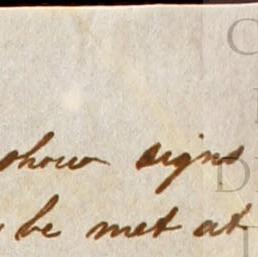 show signs
be met at